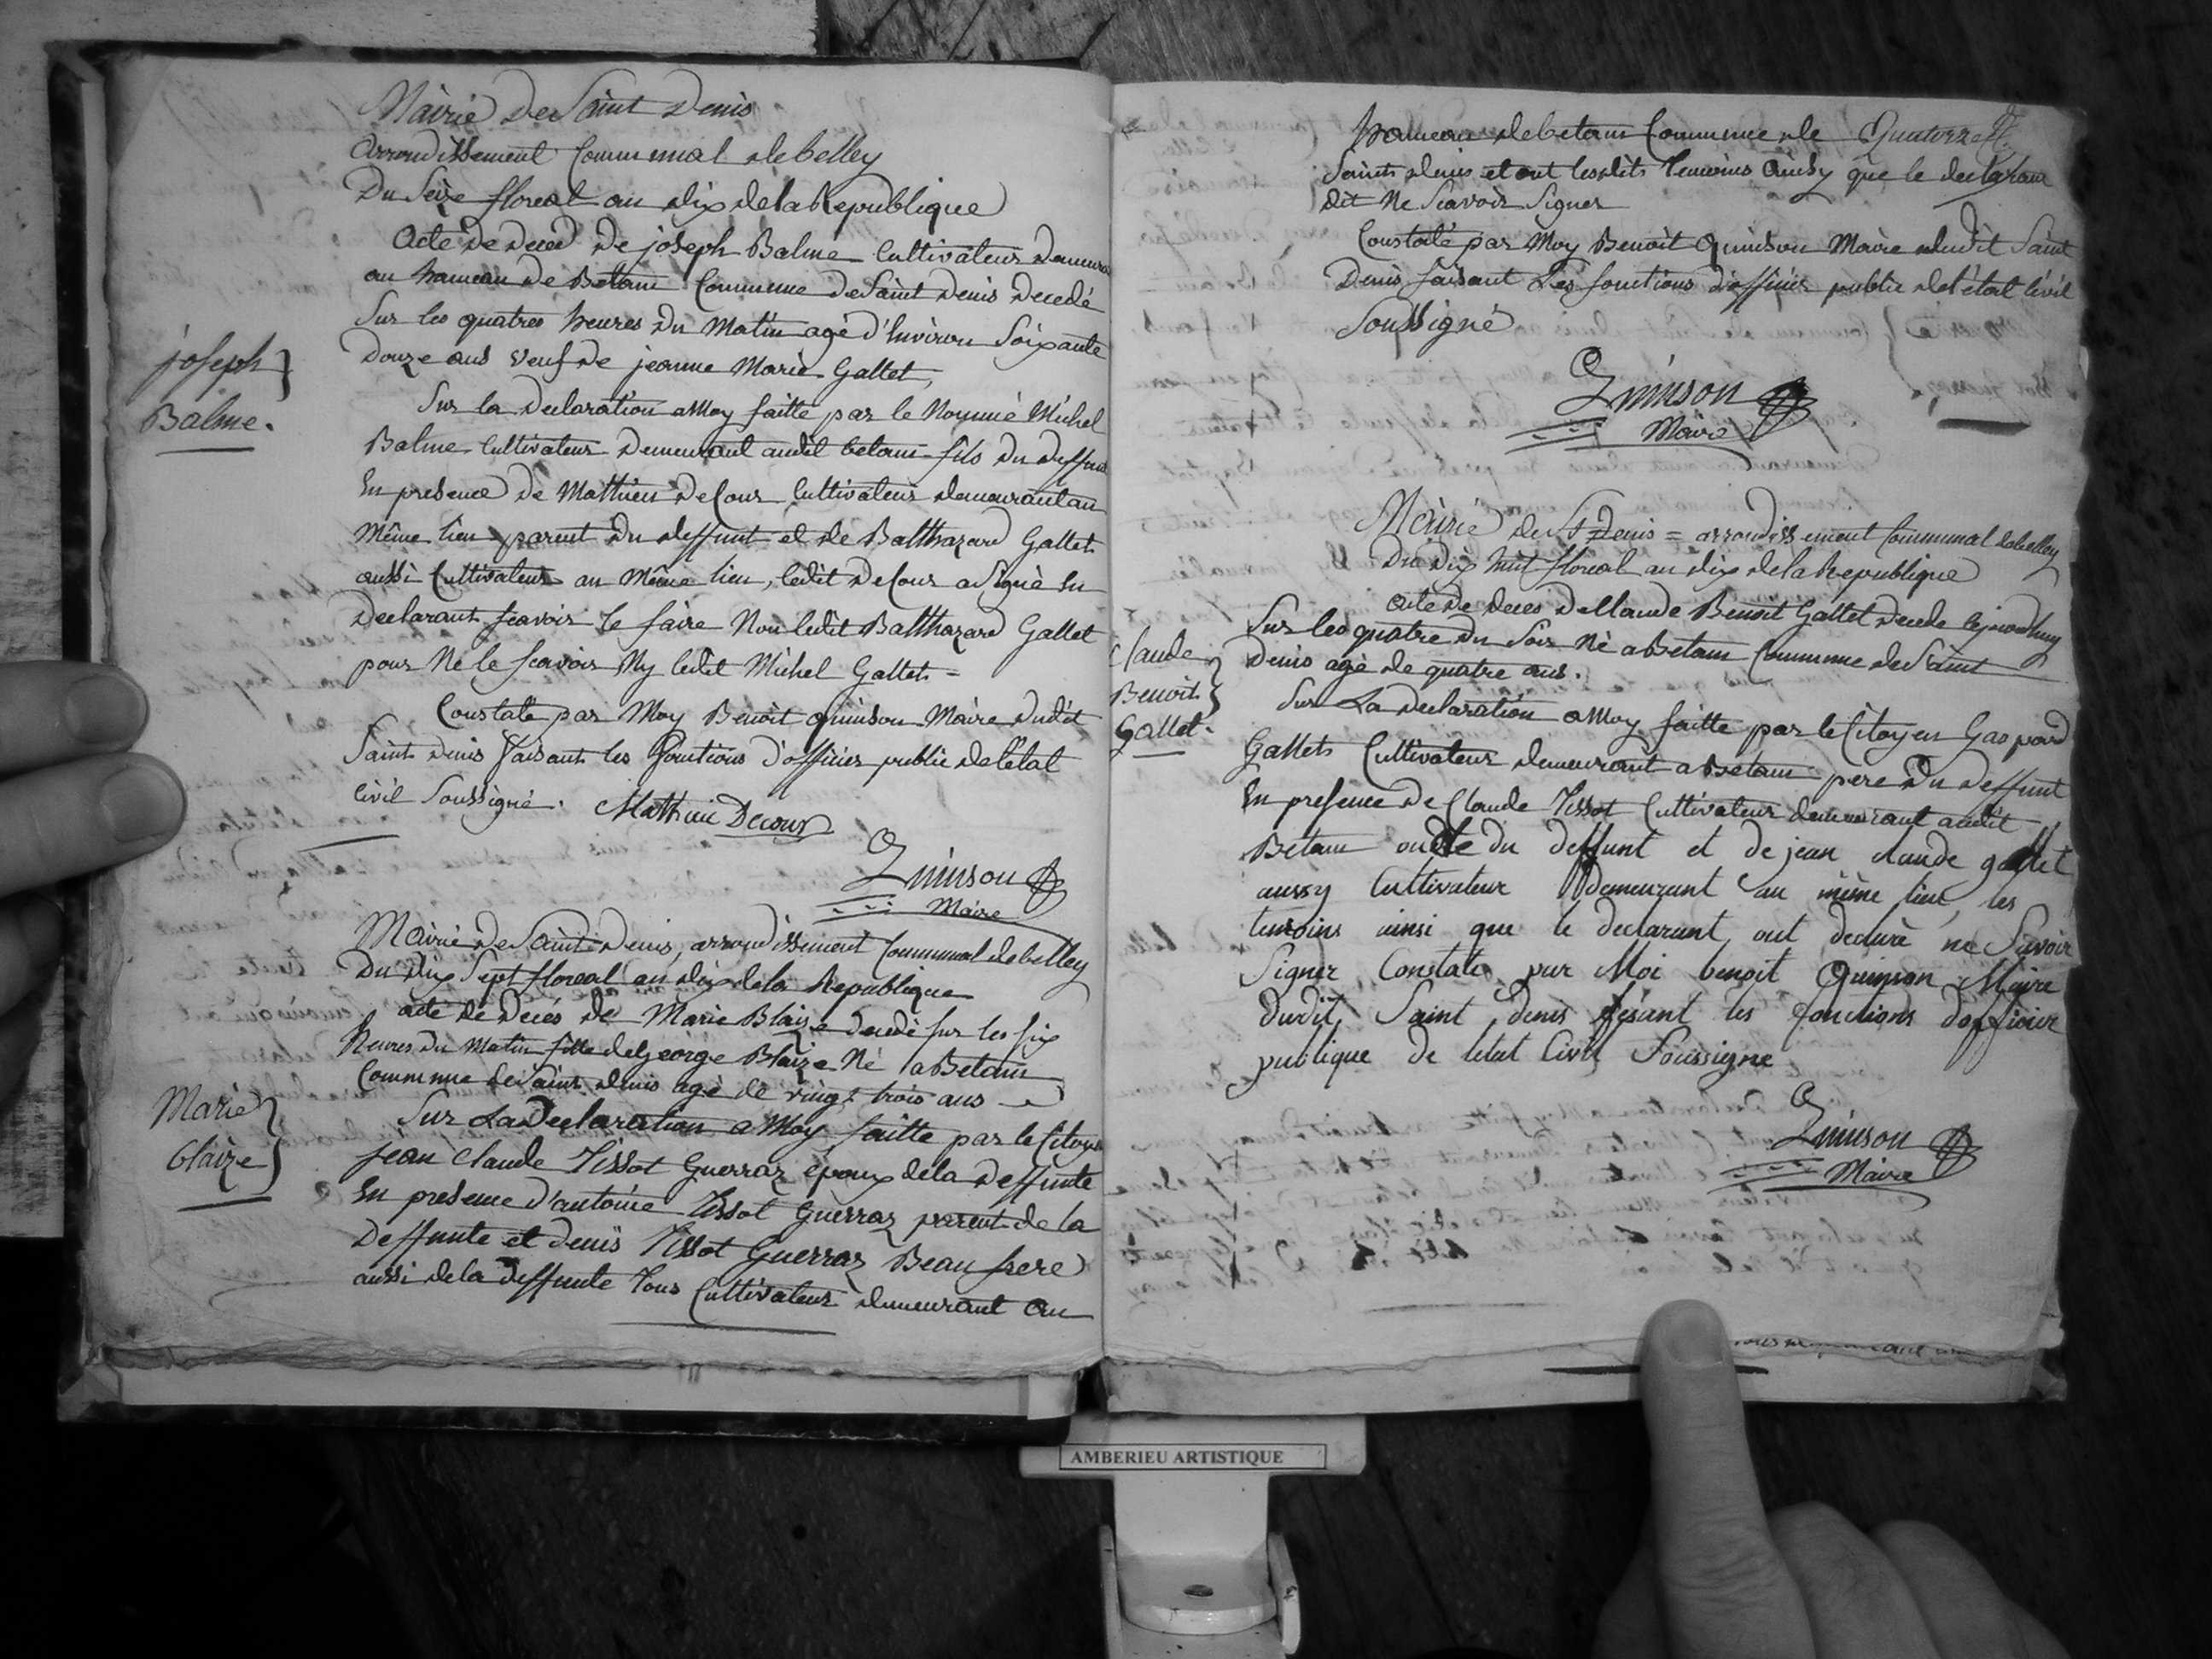 Mairie De Saint Denis
Arrondissement Communal de belley
Du Seize floreal an dix de la Republique
Acte De Deced De joseph Balme Cultivateur Demeurant
au hameau De Bettam Commune De Saint Denis Decedé
Sur les quatres heures Du Matin agé d'Environ Soixante
Douze ans veuf de jeanne Marie Gallet,
joseph
Balme.
Sur la Declaration a Moy faitte par le Nommé Michel
Balme Cultivateur Demeurant audit betam fils Du deffunt
En presence de Mathieu deCour Cultivateur demeurant au
Même lieu parent Du deffunt et de Balthazard Gallet
aussi Cultivateur au Même lieu, ledit deCour a Signé En
Declarant scavoir le faire Non ledit Balthazard Gallet
pour Ne le scavoir Ny ledit Michel Gallet =
Constaté par Moy Benoit quinson Maire dudit
Saint denis faisant les fonctions d'officier public de l'état
Civil Soussigné. Mathieu Decour
Quinson
Maire
Mairie de Saint Denis, arrondissement Communal de belley
Du dix Sept floreal an dix de la Republique
acte de decès de Marie Blaize decedé sur les six
heures du Matin fille de George Blaize Né a Betam
Commune de Saint denis agé de vingt trois ans
Marie
blaize
Sur La Declaration a Moy faitte par le Citoyen
jean Claude Tissot Guerraz epoux de la deffunte
En presence d'antoine Tissot Guerraz parent de la
Deffunte et denis Tissot Guerraz Beau frere
aussi de la deffunte Tous Cultivateur demeurant au
hameau de betam Commune de Quatorze
Saint denis et ont lesdits Temoins Ainsy que le declarant
dit Ne Scavoir Signer
Constaté par Moy Benoit Quinson Maire dudit Saint
Denis faisant Les fonctions d'officier public de l'état Civil
Soussigné
Quinson
Maire
Mairie de St Denis = arrondissement Communal de belley
Du dix huit floreal an dix de la Republique
Acte de deces de Claude Benoit Gallet decede cejourdhuy
Sur les quatre du Soir Né a Betam Commune de Saint
Denis agé de quatre ans.
Claude
Benoit
Gallet.
Sur La declaration a Moy faitte par le Citoyen Gaspard
Gallet Cultivateur demeurant a Betam pere du deffunt
En presence de Claude Tissot Cultivateur demeurant audit
Betam oncle du deffunt et de jean claude gallet
aussy Cultivateur demeurant au même lieu, les
temoins ainsi que le declarant, ont declaré ne Savoir
Signer Constaté par Moi benoit Quinson Maire
dudit Saint denis fesant les fonctions dofficier
publique de letat Civil Soussigne
Quinson
Maire
AMBERIEU ARTISTIQUE